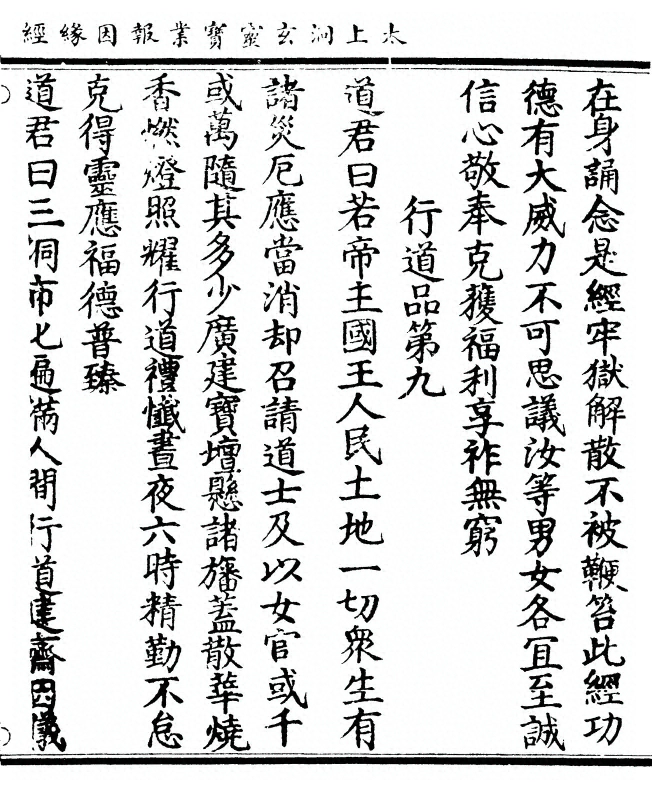 太上洞玄靈寶業報因緣經
在身誦念是經牢獄解散不被鞭笞此經功
德有大威力不可思議汝等男女各冝至誠
信心敬奉克獲福利享祚無窮
行道品第九
道君曰若帝主國王人民土地一切衆生有
諸災厄應當消却召請道士及以女官或千
或萬隨其多少廣建寶壇懸諸旛蓋散華燒
香燃燈照耀行道禮懺晝夜六時精勤不怠
克得靈應福德普臻
道君曰三洞七遍滿人間行道建齋四儀